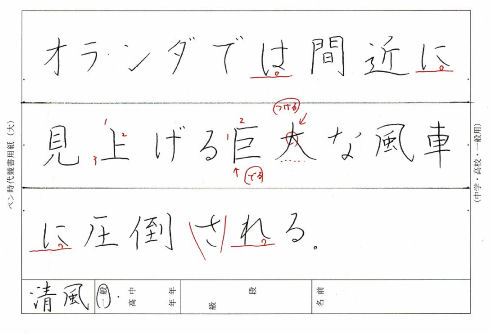 オランダでは間近に
見上げる巨大な風車
に圧倒される。
清風 般・高中 年年 段級 名前
ペン時代競書用紙(大)
(中学・高校・一般用)
つける
でる